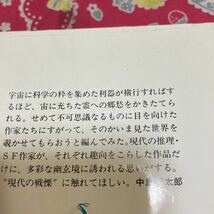 宇宙に科学の粋を集めた利器が横行すればす
るほど、宙に充ちた霊への郷愁をかきたてら
れる。せめて不可思議なるものに目を向けた
作家たちにすがって、そのかいま見た世界を
覗かせてもらおうと編んでみた。現代の推理・
SF作家が、それぞれ趣向をこらした作品だ
けに、多彩な幽玄境に誘われる思いがする。
“現代の戦慄”に触れてほしい。中島太郎